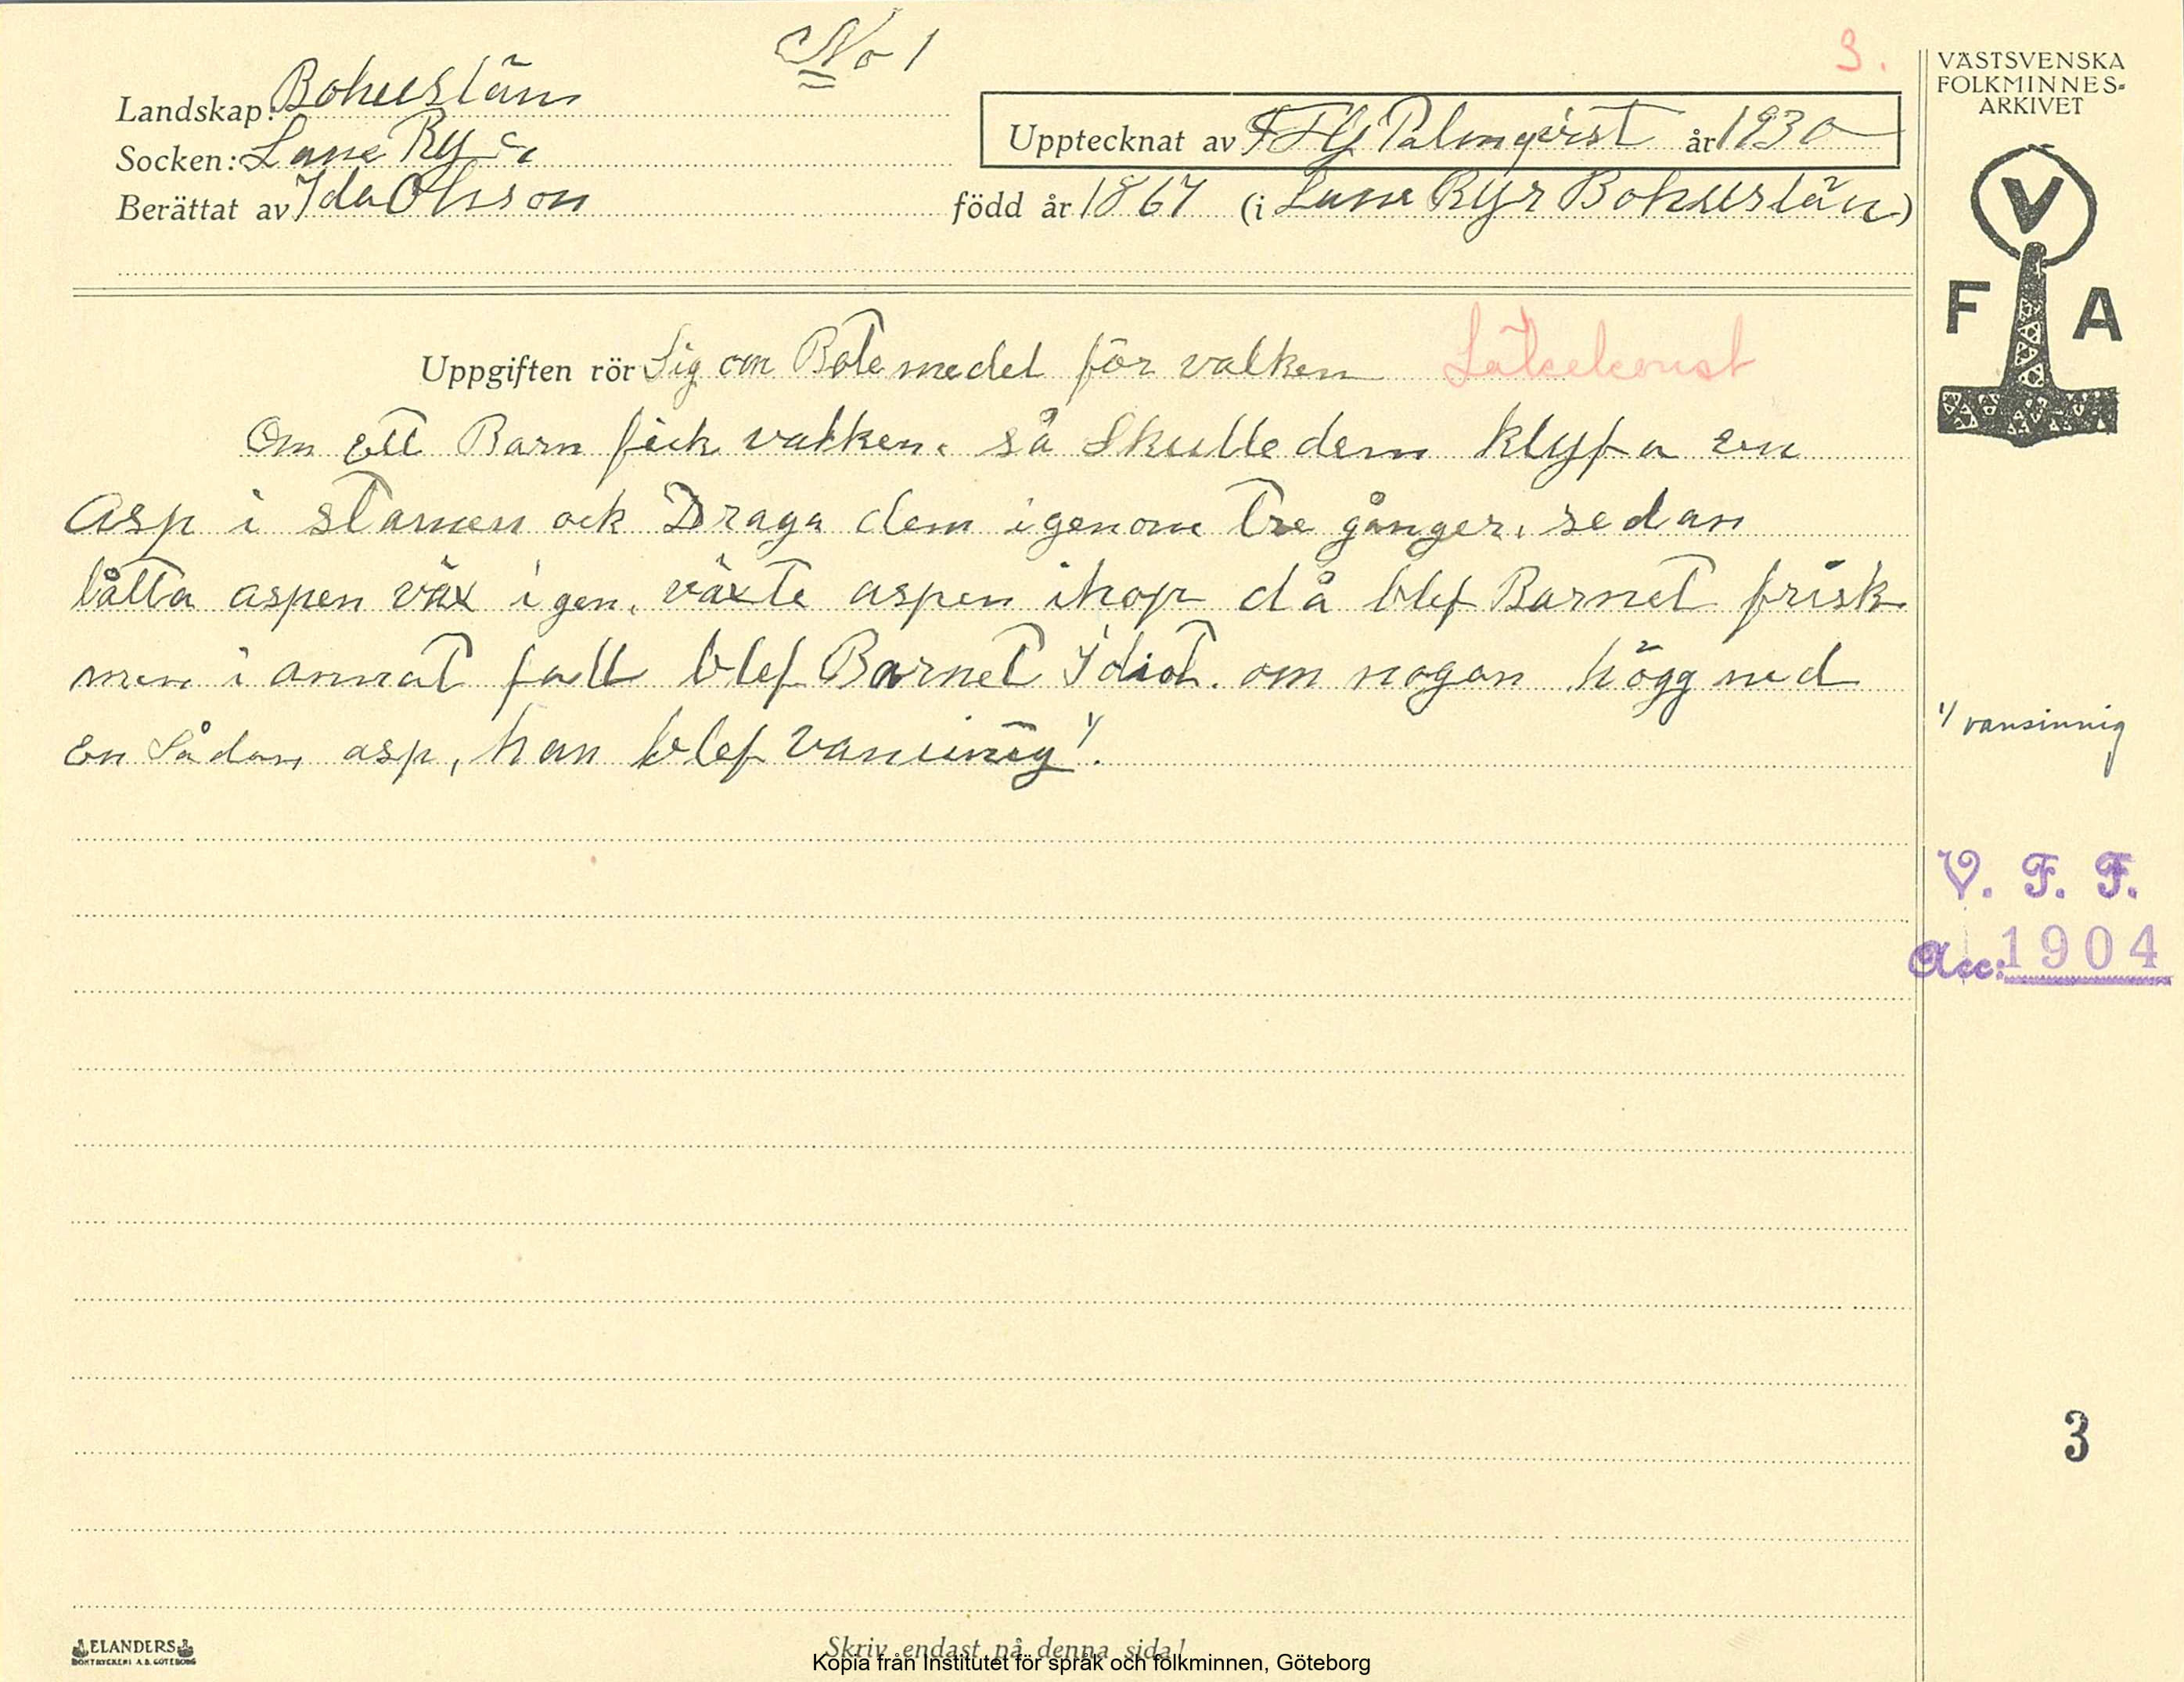 No 1
3.
Landskap: Bohuslän
Socken: Lane Ryr
Berättat av Ida Olsson
Upptecknat av Palmqvist år 1930
född år 1867 (i Lane Ryr Bohuslän)
VÄSTSVENSKA
FOLKMINNES-
ARKIVET
V
F A
Uppgiften rör Sig om Botemedel för valken
Om ett Barn fick valken. så Skulle dem klyfa en
Asp i stamen ock Draga dem igenom tre gånger, sedan
låtta aspen väx igen, växte aspen ihop då blef Barnet frisk
men i annat fall blef Barnet Idiot. om nogan högg ned
En Sådan asp, han blef 1/.
1/ vansinnig
V. F. F.
Acc: 1904
3
ELANDERS
BOKTRYCKERI A.B. GÖTEBORG
Skriv endast på denna sida!
Kopia från Institutet för språk och folkminnen, Göteborg